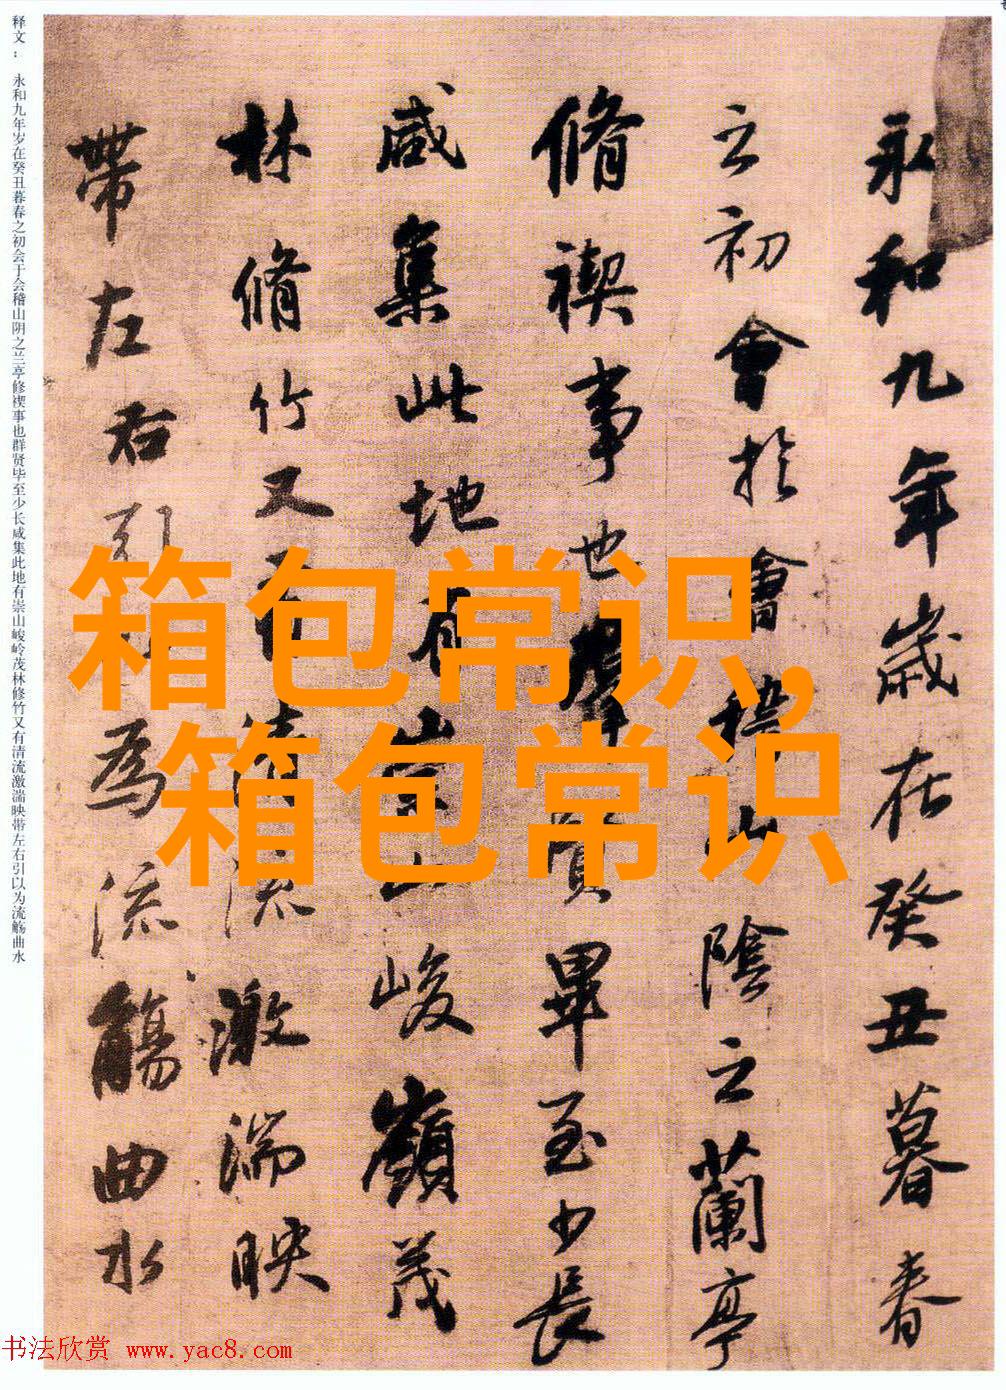 释文：永和九年岁在癸丑暮春之初会于会稽山阴之兰亭修禊事也群贤毕至少长咸集此地有崇山峻岭茂林修竹又有清流激湍映带左右引以为流觞曲水
永和九年歲在癸丑暮春
之初會於會稽山陰之蘭亭
脩禊事也群賢畢至少長
咸集此地有崇山峻嶺茂
林脩竹又有清流激湍映
帶左右引以為流觴曲水
箱包常识,
箱包常识
书法欣赏 www.yac8.com